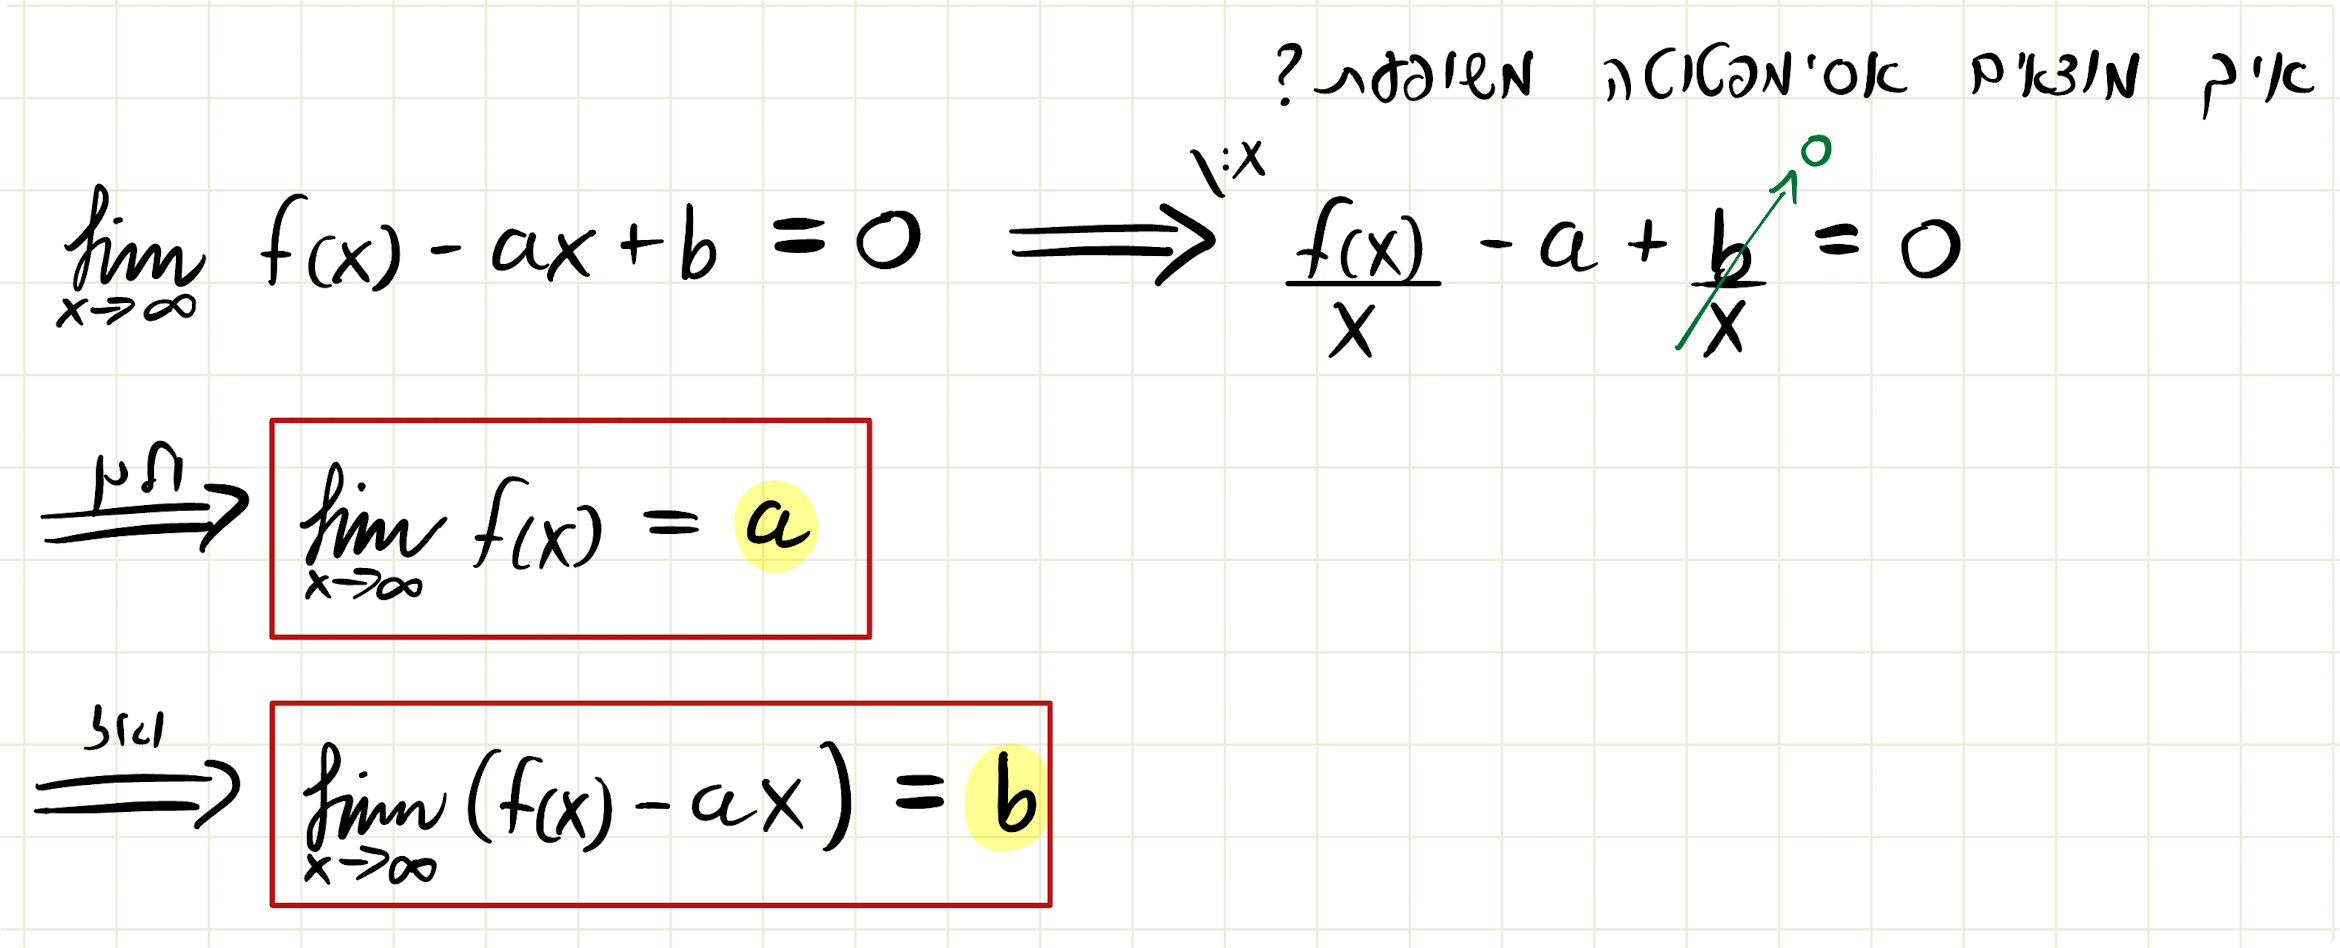 איך מוצאים אסימפטוטה משופעת?
lim x→∞ f(x) - ax + b = 0 ⟹ \:x f(x)/x - a + b/x = 0
0
⟹ lim x→∞ f(x) = a
ואז ⟹ lim x→∞ (f(x) - ax) = b